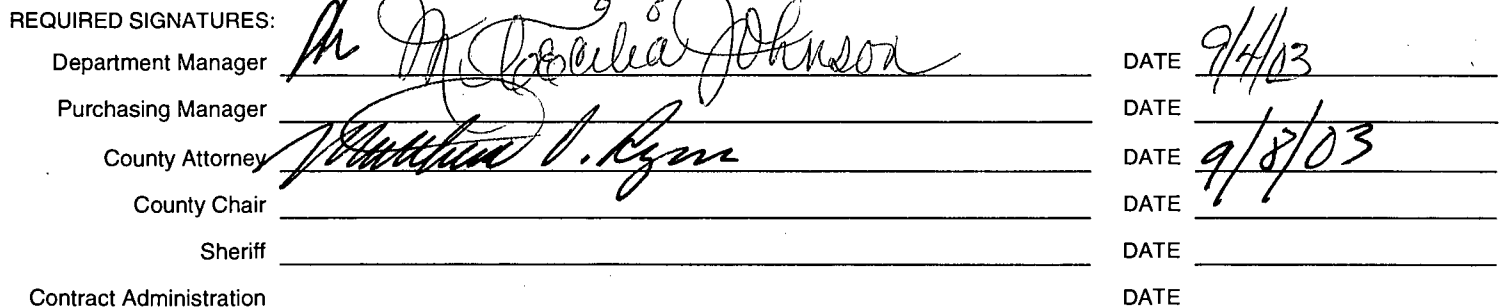 REQUIRED SIGNATURES:
Department Manager M. Cecilia Johnson DATE 9/4/03
Purchasing Manager DATE
County Attorney Matthew O. Ryan DATE 9/8/03
County Chair DATE
Sheriff DATE
Contract Administration DATE